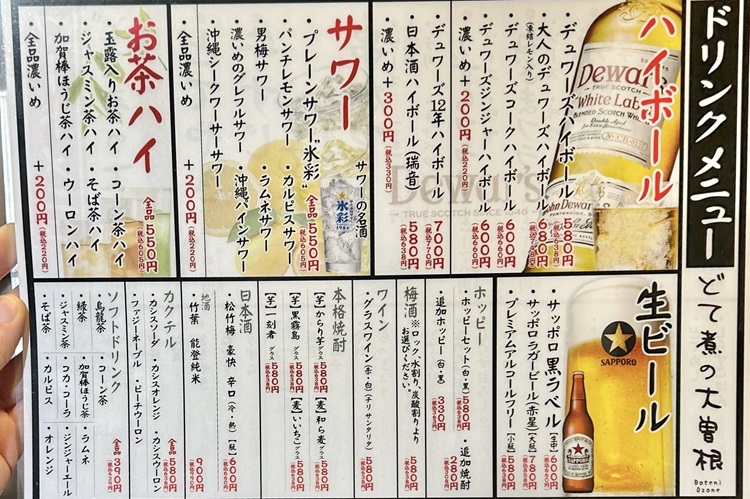 ドリンクメニュー
どて煮の大曽根
Doteni Ozone
ハイボール
・デュワーズハイボール 580円
・大人のデュワーズハイボール 680円
(凍結レモン入り)
・デュワーズコークハイボール 600円
・デュワーズジンジャーハイボール 600円
・濃いめ +200円(税込220円)
・デュワーズ12年ハイボール 700円(税込770円)
・日本酒ハイボール(瑞音) 580円(税込638円)
・濃いめ +300円(税込330円)
Dewar's
TRUE SCOTCH
White Label
BLENDED SCOTCH WHISKY
サワー
サワーの名酒
・プレーンサワー"氷彩" 全品550円(税込605円)
・パンチレモンサワー ・カルピスサワー
・男梅サワー ・ラムネサワー
・濃いめのグレフルサワー ・沖縄パインサワー
・沖縄シークワーサーサワー
・全品濃いめ +200円(税込220円)
氷彩
1984
お茶ハイ
全品550円(税込605円)
・玉露入りお茶ハイ ・コーン茶ハイ
・ジャスミン茶ハイ ・そば茶ハイ
・加賀棒ほうじ茶ハイ ・ウーロンハイ
・全品濃いめ +200円(税込220円)
生ビール
・サッポロ黒ラベル[生中]
・サッポロラガービール(赤星)[大瓶] 780円
・プレミアムアルコールフリー[小瓶] 580円
SAPPORO
ホッピー
・ホッピーセット(白・黒) 580円
・追加ホッピー(白・黒) 330円
・追加焼酎 280円
梅酒
※ロック、水割り、炭酸割りよりお選びください。
580円
ワイン
・グラスワイン(赤・白)(チリサンタリタ) 560円
本格焼酎
・[芋]からり芋 グラス 580円 ・[麦]和ら麦 グラス 580円
・[芋]黒霧島 グラス 580円 ・[麦]いいちこ グラス 580円
・[芋]一刻者 グラス 580円
日本酒
・松竹梅 豪快 辛口(冷・熱)[瓶] 600円
地酒
・竹葉 能登純米 900円
カクテル
全品580円
・カシスソーダ ・カシスオレンジ ・カシスウーロン
・ファジーネーブル ・ピーチウーロン
ソフトドリンク
全品390円
・烏龍茶 ・コーン茶
・緑茶 ・加賀棒ほうじ茶 ・ラムネ
・ジャスミン茶 ・コカ・コーラ ・ジンジャーエール
・そば茶 ・カルピス ・オレンジ